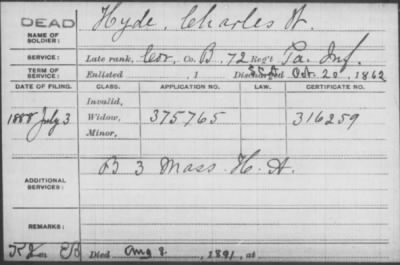 DEAD
Hyde, Charles H.
NAME OF SOLDIER:
SERVICE:
Late rank, Cor, Co. B, 72 Reg't Pa. Inf.
TERM OF SERVICE:
Enlisted , 1 Discharged Oct. 20, 1862
DATE OF FILING. CLASS. APPLICATION NO. LAW. CERTIFICATE NO.
Invalid,
1888 July 3 Widow, 375765 316259
Minor,
ADDITIONAL SERVICES:
B 3 Mass. H. A.
REMARKS:
Died Aug 8, 1891, at